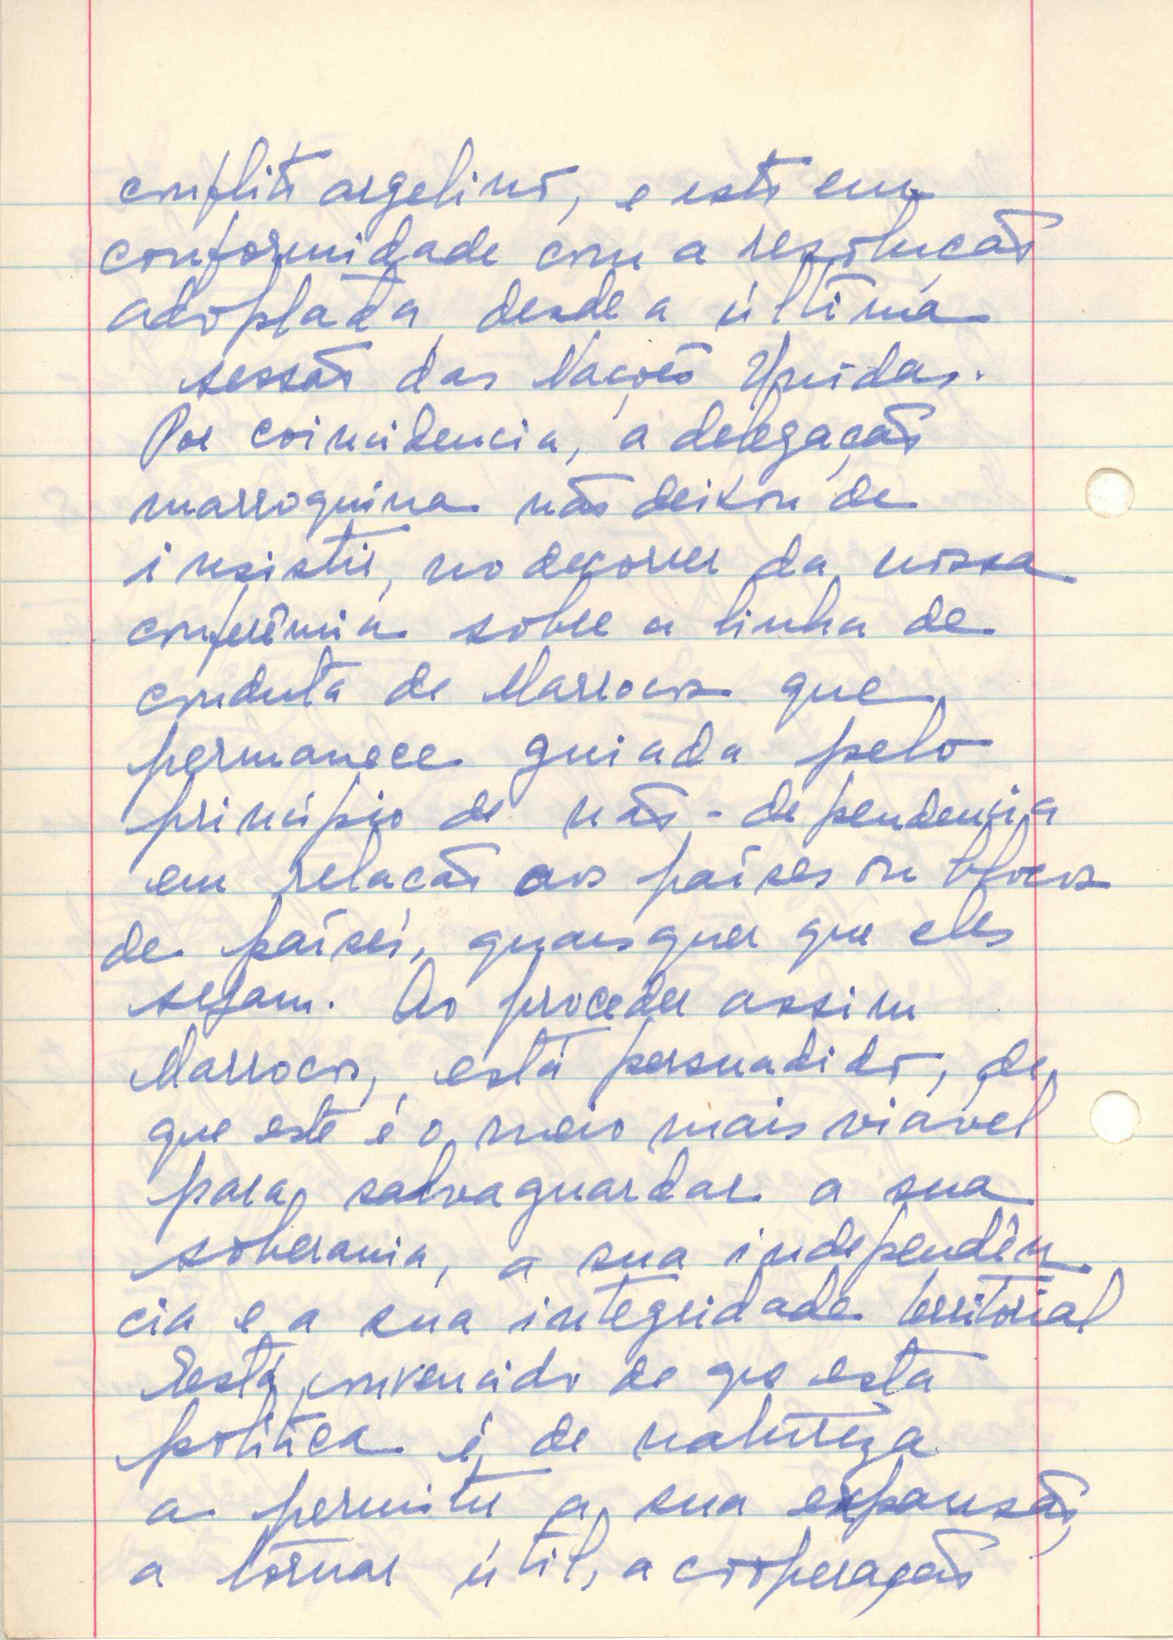 conflito argelino, e isto em
conformidade com a resolução
adoptada, desde a última
sessão das Nações Unidas.
Por coincidencia, a delegação
marroquina não deixou de
insistir, no decorrer da nossa
conferência sobre a linha de
conduta de Marrocos que
permanece guiada pelo
princípio de não-dependencia
em relação aos países ou blocos
de países, quaisquer que eles
sejam. Ao proceder assim
Marrocos, está persuadido, de
que este é o meio mais viável
para salvaguardar a sua
soberania, a sua independên
cia e a sua integridade territorial
Está convencido de que esta
política é de natureza
a permitir a sua expansão,
a tornar útil, a cooperação